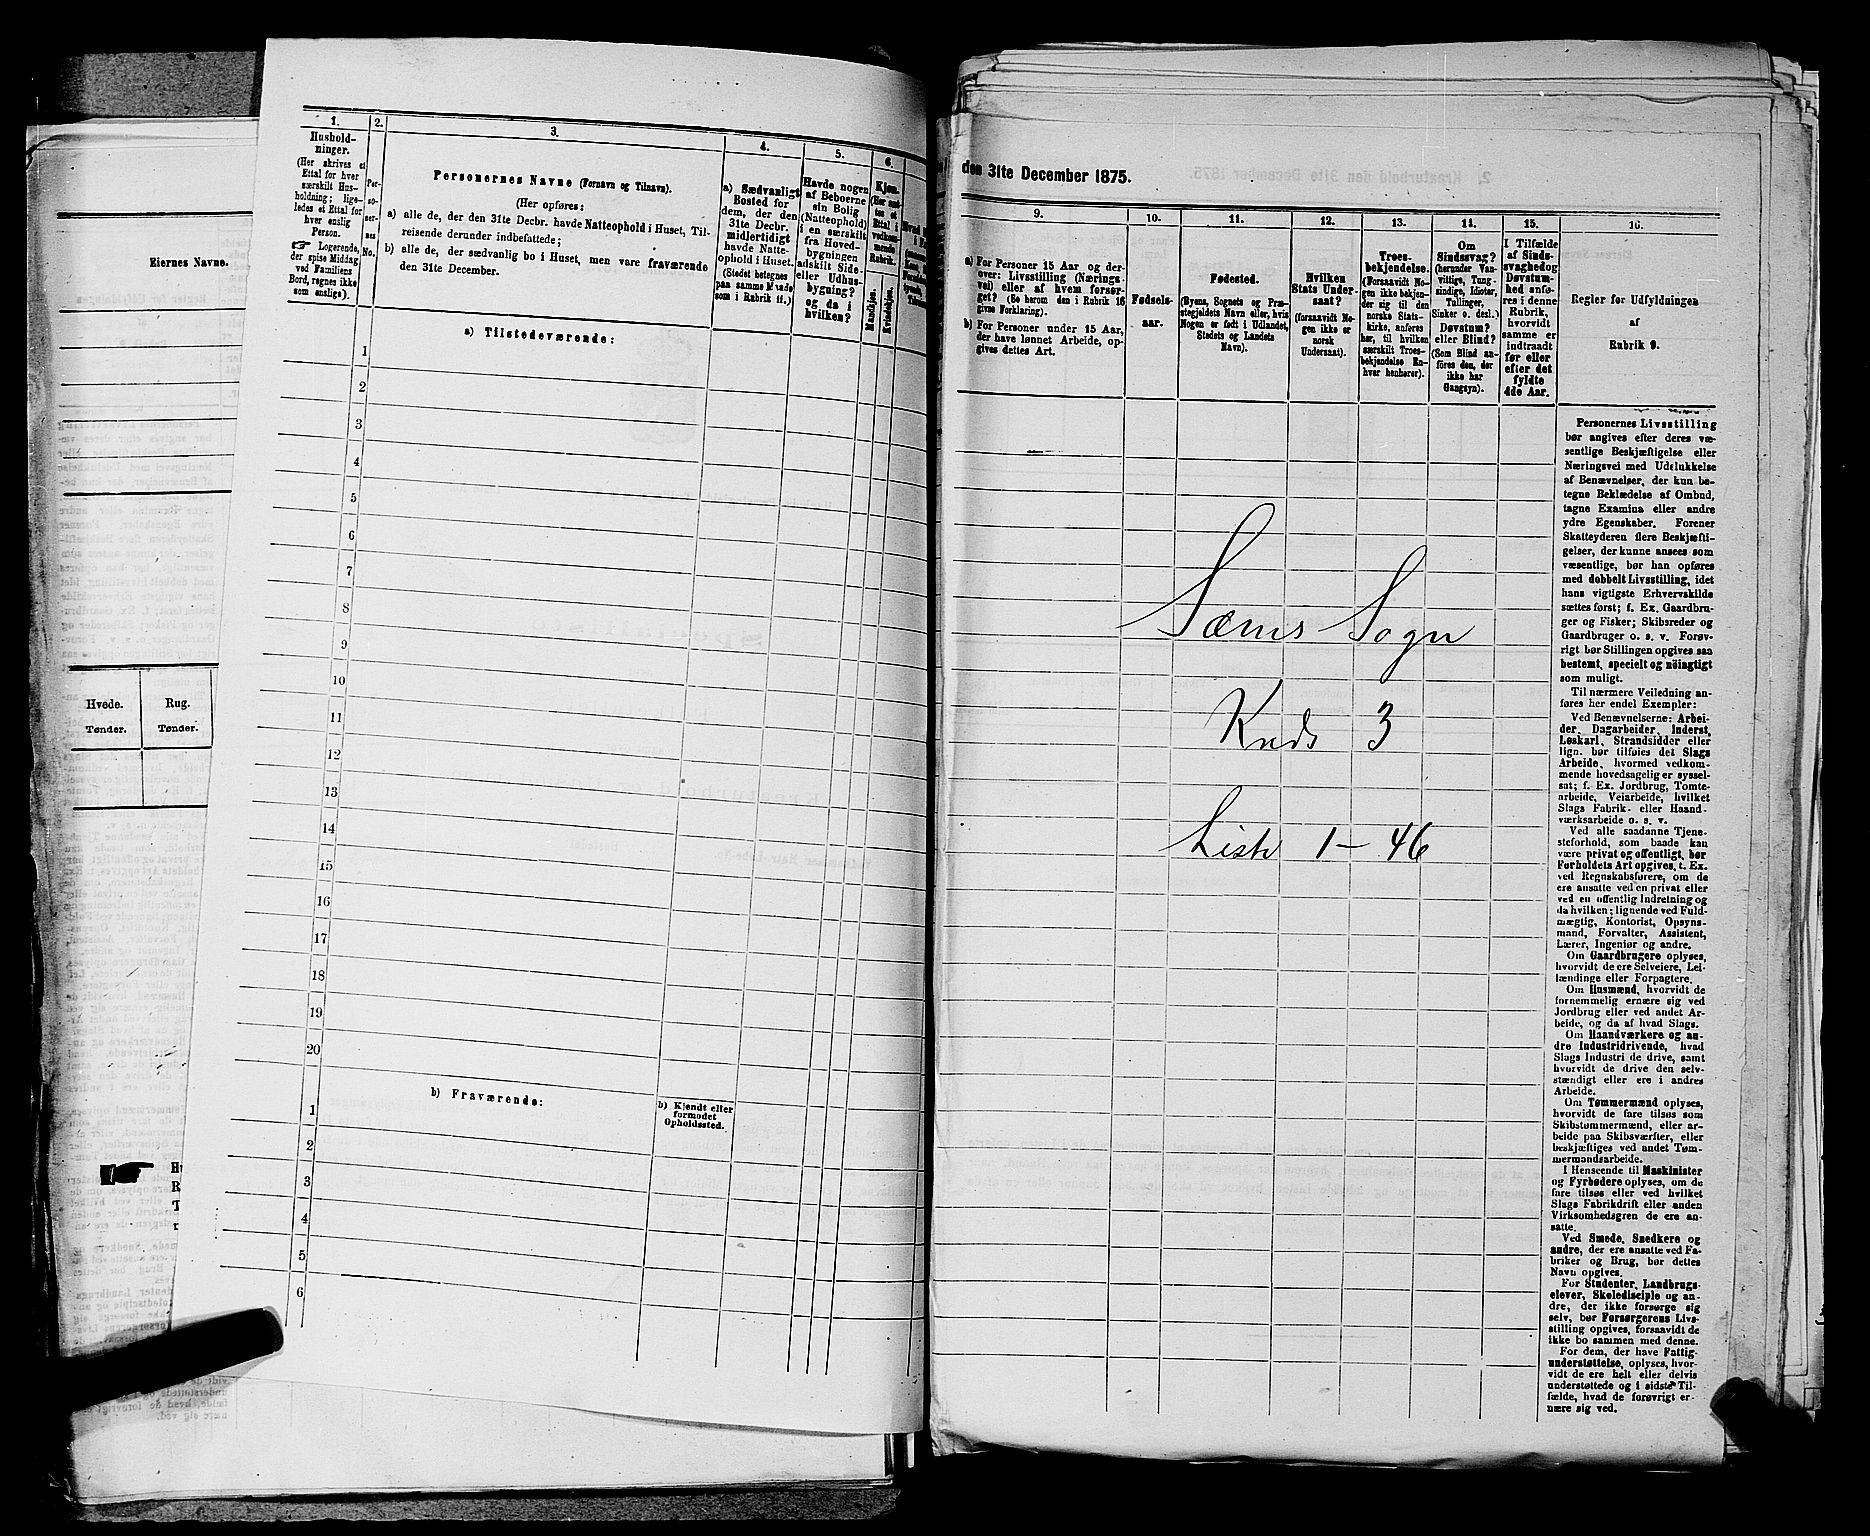 Eiernes Navne.
Hvede.
Tønder.
Rug.
Tønder.
1.
Husholdninger.
(Her skrives et
Ettal for hver
særskilt Husholdning; ligeledes et Ettal for
hver enslig
Person.
☞ Logerende,
der spise Middag
ved Familiens
Bord, regnes ikke
som enslige).
2.
Personernes
No.
3.
Personernes Navne (Fornavn og Tilnavn).
(Her opføres:
a) alle de, der den 31te Decbr. havde Natteophold i Huset, Tilreisende derunder indbefattede;
b) alle de, der sædvanlig bo i Huset, men vare fraværende
den 31te December.
4.
a) Sædvanligt
Bosted for
dem, der den
31te Decbr.
midlertidigt
havde Natteophold i Huset.
(Stedet betegnes
paa samme Maade
som i Rubrik 11.)
5.
Havde nogen
af Beboerne
sin Bolig
(Natteophold)
i en særskilt
fra Hovedbygningen
adskilt Side- eller Udhusbygning?
og da i
hvilken?
6.
Kjøn.
Mandkjøn.
Kvindekjøn.
a) Tilstedeværende:
1
2
3
4
5
6
7
8
9
10
11
12
13
14
15
16
17
18
19
20
b) Fraværende:
b) Kjendt eller
formodet
Opholdssted.
1
2
3
4
5
6
den 31te December 1875.
9.
a) For Personer 15 Aar og derover: Livsstilling (Næringsvei) eller af hvem forsørget? (Se herom den i Rubrik 16
givne Forklaring).
b) For Personer under 15 Aar,
der have lønnet Arbeide, opgives dettes Art.
10.
Fødselsaar.
11.
Fødested.
(Byens, Sognets og Præstegjeldets Navn eller, hvis
Nogen er født i Udlandet,
Stedets og Landets
Navn).
12.
Hvilken
Stats Undersaat?
(forsaavidt Nogen ikke er
norsk
Undersaat).
13.
Troesbekjendelse.
(Forsaavidt Nogen ikke bekjender sig til den
norske Statskirke, anføres
her, til hvilken
særskilt Troesbekjendelse Enhver henhører).
14.
Om
Sindssvag?
(herunder Vanvittige, Tungsindige, Idioter,
Tullinger,
Sinker o. desl.)
Døvstum?
eller Blind?
(Som Blind anføres den, der
ikke har
Gangsyn).
15.
I Tilfælde
af Sindssvaghed og
Døvstumhed anføres i denne
Rubrik,
hvorvidt
samme er
indtraadt
før eller
efter det
fyldte
4de Aar.
16.
Regler for Udfyldningen
af
Rubrik 9.
Sæms Sogn
Kreds 3
Liste 1 – 46
Personernes Livsstilling
bør angives efter deres væsentlige Beskjæftigelse eller
Næringsvei med Udelukkelse
af Benævnelser, der kun betegne Beklædelse af Ombud,
tagne Examina eller andre
ydre Egenskaber. Forener
Skatteyderen flere Beskjæftigelser, der kunne ansees som
væsentlige, bør han opføres
med dobbelt Livsstilling, idet
hans vigtigste Erhvervskilde
sættes først; f. Ex. Gaardbruger og Fisker; Skibsreder og
Gaardbruger o. s. v. Forøvrigt bør Stillingen opgives saa
bestemt, specielt og nöiagtigt
som muligt.
Til nærmere Veiledning anføres her endel Exempler:
Ved Benævnelserne: Arbeider, Dagarbeider, Inderst,
Løskarl, Strandsidder eller
lign. bør tilføies det Slags
Arbeide, hvormed vedkommende hovedsagelig er sysselsat; f. Ex. Jordbrug, Tomtearbeide, Veiarbeide, hvilket
Slags Fabrik- eller Haandværksarbeide o. s. v.
Ved alle saadanne Tjenesteforhold, som baade kan
være privat og offentligt, bør
Forholdets Art opgives, t. Ex.
ved Regnskabsførere, om de
ere ansatte ved en privat eller
ved en offentlig Indretning og
da hvilken; lignende ved Fuldmægtig, Kontorist, Opsynsmand, Forvalter, Assistent,
Lærer, Ingeniør og andre.
Om Gaardbrugere oplyses,
hvorvidt de ere Selveiere, Leilændinge eller Forpagtere.
Om Husmænd, hvorvidt de
fornemmelig ernære sig ved
Jordbrug eller ved andet Arbeide, og da af hvad Slags.
Om Haandværkere og andre Industridrivende, hvad
Slags Industri de drive, samt
hvorvidt de drive den selvstændigt eller ere i andres
Arbeide.
Om Tømmermænd oplyses,
hvorvidt de fare tilsøs som
Skibstømmermænd, eller arbeide paa Skibsværfter, eller
beskjæftiges ved andet Tømmermandsarbeide.
I Henseende til Maskinister
og Fyrbødere oplyses, om de
fare tilsøs eller ved hvilket
Slags Fabrikdrift eller anden
Virksomhedsgren de ere ansatte.
Ved Smede, Snedkere og
andre, der ere ansatte ved Fabriker og Brug, bør dettes
Navn opgives.
For Studenter, Landbrugselever, Skoledisciple og andre, der ikke forsørge sig
selv, bør Forsørgerens Livsstilling opgives, forsaavidt de
ikke bo sammen med denne.
For dem, der have Fattigunderstøttelse, oplyses, hvorvidt de ere helt eller delvis
understøttede og i sidste Tilfælde, hvad de forøvrigt ernære sig ved.